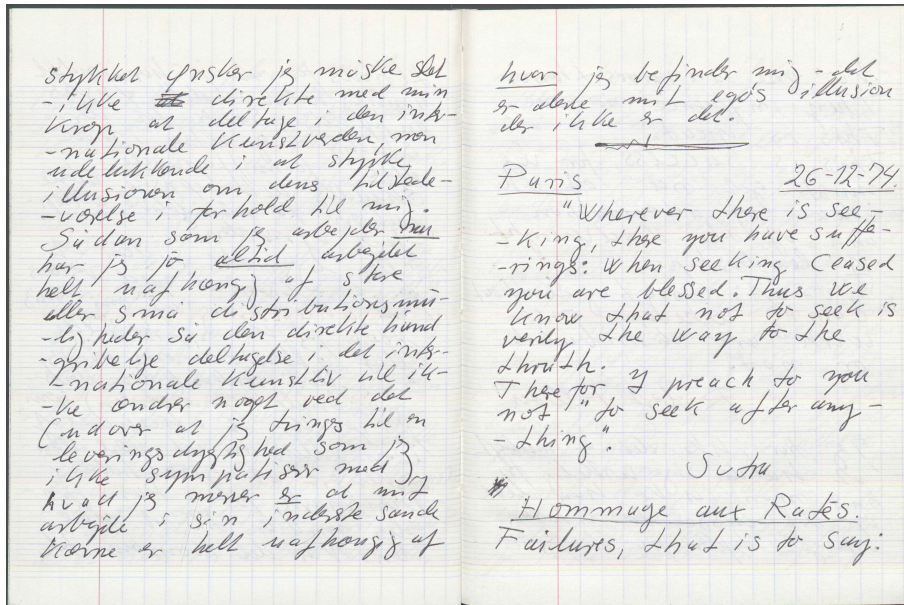 stykket ønsker jeg måske slet
-ikke at direkte med min
krop at deltage i den inter-
-nationale kunstverden, men
udelukkende i at styrke
illusionen om dens tilstede-
-værelse i forhold til mig.
Sådan som jeg arbejder nu
har jeg jo altid arbejdet
helt uafhængig af store
eller små distributionsmu-
-ligheder så den direkte hånd
-gribelige deltagelse i det inter-
-nationale kunstliv vil ik-
-ke ændrer noget ved det
(udover at jeg tvinges til en
leveringsdygtighed som jeg
ikke sympatiserer med)
hvad jeg mener er at mit
arbejde i sin inderste sande
kærne er helt uafhængig af
hvor jeg befinder mig - det
er alene mit egos illusion
der ikke er det.
Paris 26-12-74.
"Wherever there is see-
-king, there you have suffe-
-rings: When seeking ceased
you are blessed. Thus we
know that not to seek is
verily the way to the
thruth.
Therefor I preach to you
not "to seek after any-
-thing".
Sutra
Hommage aux Ratés.
Failures, that is to say: